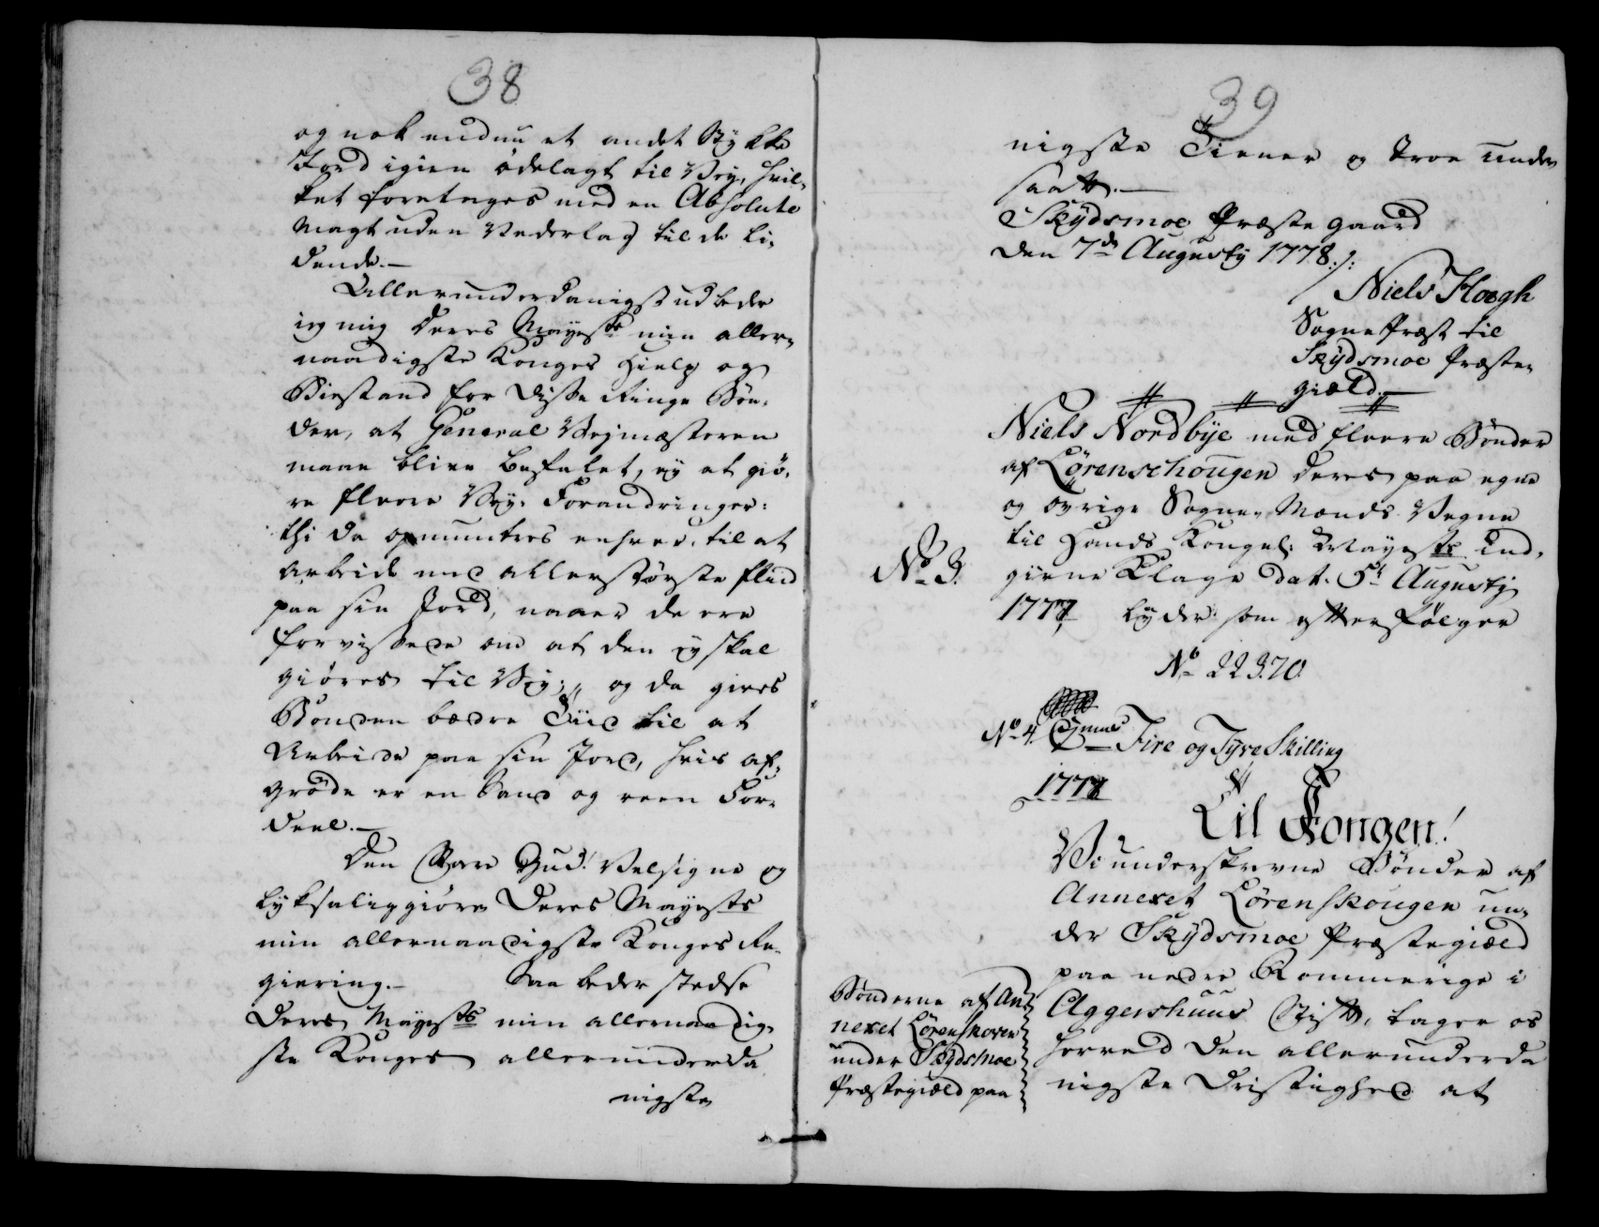 38
og nok endnu et andet Stykke
Jord igien ødelagt til Vey, hvil-
ket foretages med en Absolute
Magt uden Vederlag til de li-
dende.—
Allerunderdanigst udbeder
ieg mig Deres Mayestts min aller-
naadigste Konges Hielp og
Biestand for disse Ringe Bøn-
der, at General Vejmæsteren
maae blive befalet, ey at giø-
re fleere Vey-Forandringer:
thi da opmuntres enhver, til at
Arbeide med allerstørste fliid
paa sin Jord, naar de ere
forvissede om at den ey skal
giøres til Vey; og da gives
Bonden bædre Tiid til at
Arbeide paa sin Jord, hvis af-
grøde er en Sand og reen For-
deel.—
Den Store Gud! Velsigne og
lyksaliggiøre Deres Mayestts
min allernaadigste Konges Re-
giering.— Saa beder stedse
Deres Mayestts min allernaadig-
ste Konges allerunderda
nigste
39
nigste Tiener og troe under
saatt.—
Skydsmoe Præstegaard
den 7de Augusty 1778./:
Niels Hoegh
SognePræst til
Skydsmoe Præste-
giæld.—
Niels Nordbye med fleere Bønder
af Lørenschougen deres paa egne
og øvrige Sogne-Mænds Vegne
til Hands Kongel: Mayestts Ind-
No 3.
givne Klage dat. 5t Augusty
1777 lyder som efterfølger
No 22370.
No 4. Fire og Tyve Skilling
1777
Til Kongen!
Vi underskrevne Bønder af
Annexet Lørenskougen un-
der Skydsmoe Præstegiæld
paa nedre Rommerige i
Aggershuus Stift, tager os
herved den allerunderda
nigste Dristighed at
Bønderne af An
nexet Lørenskoven
under Skydsmoe
Præstegiæld paa